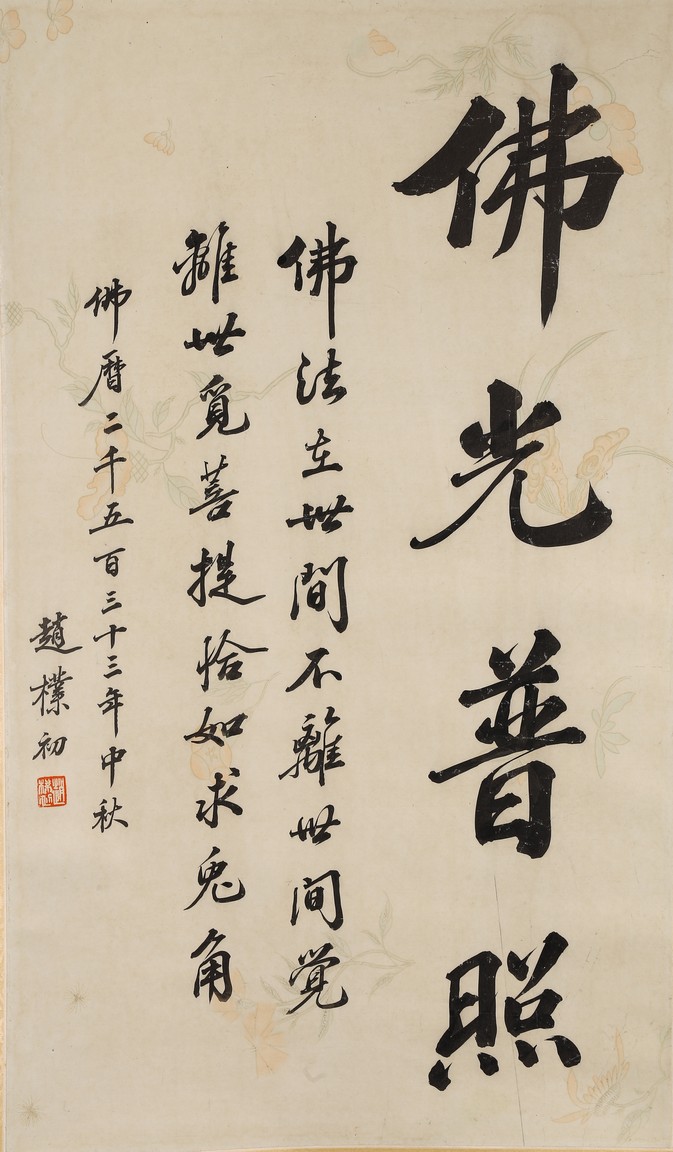 佛光普照
佛法在世間不離世間覺
離世覓菩提恰如求兎角
佛曆二千五百三十三年中秋
趙樸初